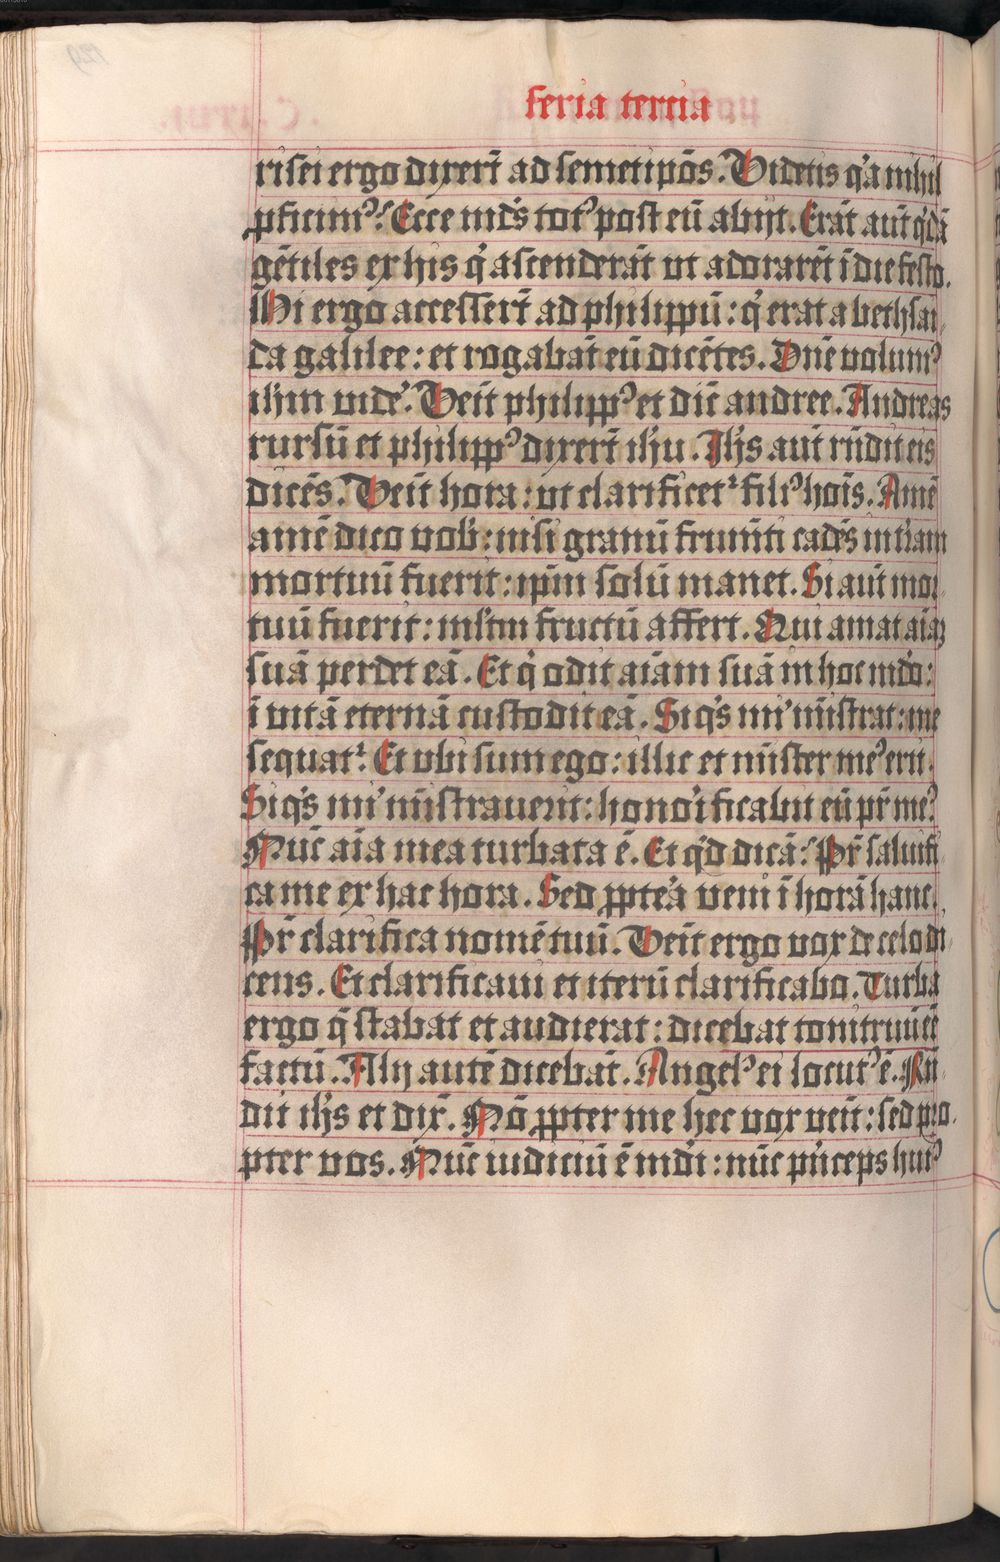 feria tercia
risei ergo dixer̄t ad semetip̄os. Videtis q̓a nihil
ꝓficimꝰ? Ecce mūds totꝰ post eū abijt. Erāt aut̄ q̓dā
gētiles ex his q̓ ascenderāt ut adorarēt ī die festo.
Hi ergo accesser̄t ad philippū: q̓ erat a bethsai-
da galilee: et rogabāt eū dicētes. Dn̄e volumꝰ
ih̄m vidē. Veīt philippꝰ et dic̄ andree. Andreas
rursū et philippꝰ dixer̄t ih̄u. Ih̄s aut̄ rn̄dit eis
dicēs. Veīt hora: ut clarificet̄ filiꝰ hoīs. Amē
amē dico vob̄: nisi granū frumēti cadēs in t̄ram
mortuū fuerit: ip̄m solū manet. Si aut̄ mor-
tuū fuerit: ml̄tm fructū affert. Qui amat aīaꝫ
suā perdet eā. Et q̓ odit aīam suā in hoc mūdo:
ī vitā eternā custodit eā. Siq̓s mi' mīstrat: me
sequat̄. Et ubi sum ego: illic et mīster meꝰ erit.
Siq̓s mi' mīstrauerit: honorificabit eū pr̄ meꝰ.
Nūc aīa mea turbata ē. Et q̓d dicā? Pr̄ saluifi-
ca me ex hac hora. Sed ꝓpteā veni ī horā hanc.
Pr̄ clarifica nomē tuū. Veīt ergo vox de celo di-
cens. Et clarificaui et iterū clarificabo. Turba
ergo q̄ stabat et audierat: dicebat tonitruū ēē
factū. Alij autē dicebāt. Angelꝰ ei locutꝰ ē. Rn̄-
dit ih̄s et dix̄. Nō ꝓpter me hec vox veīt: sed pro-
pter vos. Nūc iudiciū ē mūdi: nūc pn̄ceps huiꝰ